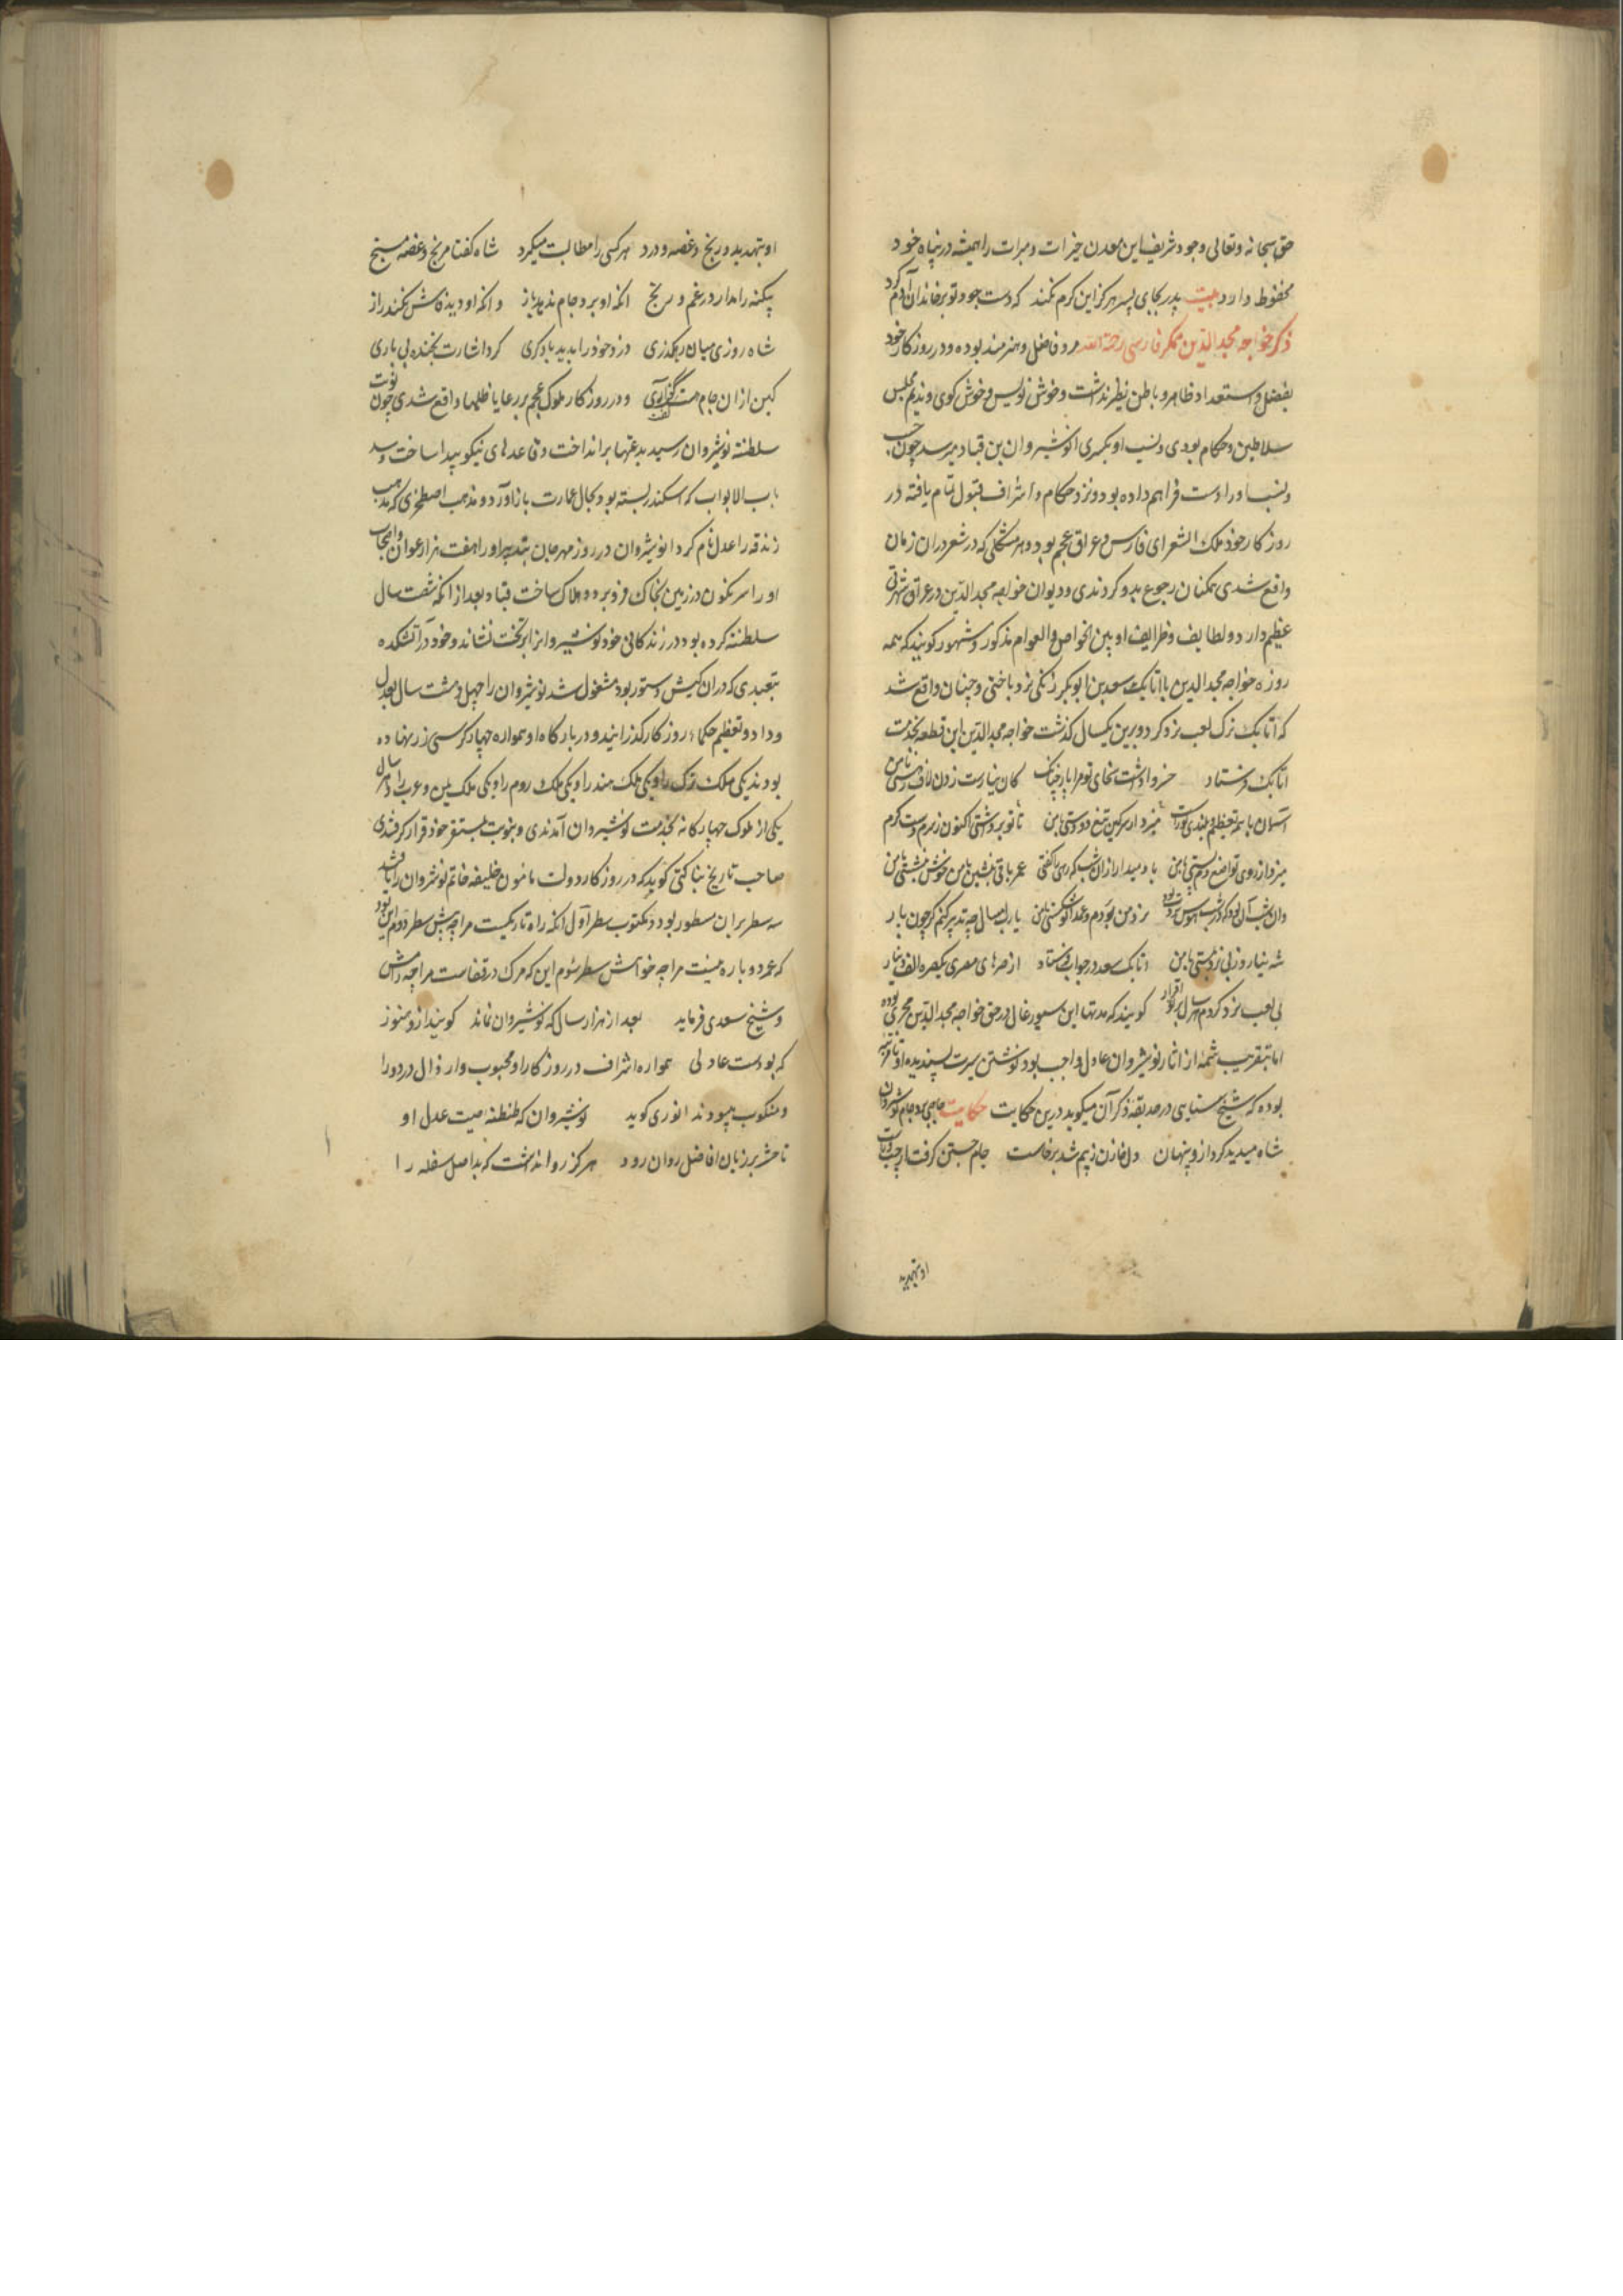 حق سبحانه وتعالی وجود شریف این معدن خیرات ومبرات را همیشه در پناه خود
محفوظ دارد بیت پدر بجای پسر هرگز این کرم نکند که دست جود تو بر خاندان آدم کرد
ذکر خواجه مجد الدین همکر فارسی رحمة الله مرد فاضل وهنرمند بوده ودر روزکار خود
بفضل واستعداد ظاهر وباطن نظیر نداشت وخوش نویس وخوش کوی وندیم مجلس
سلاطین وحکام بودی ونسب او بکسری انوشیروان بن قباد میرسد چون حسب
ونسب اورا دست فراهم داده بود ونزد حکام واشراف قبول تمام یافته در
روزکار خود ملک الشعرای فارس وعراق عجم بود وهر مشکلی که در شعر دران زمان
واقع شدی همکنان رجوع بدو کردندی ودیوان خواجه مجد الدین در عراق شهرتی
عظیم دارد ولطایف وظرایف او بین الخواص والعوام مذکور ومشهور کویند که همه
روزه خواجه مجد الدین با اتابک سعد بن ابوبکر زنکی نرد باختی وچنان واقع شد
که اتابک ترک لعب نرد کرد وبرین یکسال کذشت خواجه مجد الدین این قطعه بخدمت
اتابک فرستاد خسروا داشت سخای تو مرا پار چنانک کان نیارست زدن لاف با من
آسمان با همه تعظیم وبلندی
میزد از روی تواضع در پستی با من یاد میدار از ان شب که رهی را کفتی عمر باقی بنشین با من خوش
نرد من بردم وعهد تو شکستی با من یارب امسال چه تدبیر کنم کر چون پار
شه نیارد زنی نرد اتابک سعد در جواب فرستاد از صرهای مصری یکصره الف دینار
بی لعب نرد کردم هر سال بر تو اقرار کویند که مدتها این سیورغال در حق خواجه مجد الدین مجری بوده
اما بتقریب شمه از اثار نوشیروان عادل واجب بود نوشتن سیرت پسندیده او
بوده که شیخ سنایی در حدیقه ذکر آن میکوید درین حکایت حکایت حاجبی برد جام نوشروان
شاه میدید کرد ازو پنهان دل خازن زبیم شد برخاست جام جستن کرفت از چپ وراست
او بتهدید
او بتهدید ورنج وغصه ودرد هر کسی را مطالبت میکرد شاه کفتا مرنج وغصه مسنج
بیکنه را مدار در غم ورنج انکه او برد جام ندهد باز وانکه او دید فاش نکند راز
شاه روزی میان رهکذری دزد خود را بدید باکمری کرد اشارت بخنده بی یاری
کین از ان جام هست کفت آری ودر روزکار ملوک عجم بر رعایا ظلمها واقع شدی چون نوبت
سلطنت نوشیروان رسید بدعتها برانداخت وقاعدهای نیکو پیدا ساخت وسد
باب الابواب که اسکندر بسته بود بحال عمارت باز آورد ومذهب اصطخری که مذهب
زندقه را عدل نام کرد انوشیروان در روز مهرجان بتدبیر اورا هفت هزار عوان واصحاب
اورا سرنکون در زمین بخاک فروبرد وهلاک ساخت قباد بعد از انکه شصت سال
سلطنت کرده بود در زندکانی خود نوشیروانرا بر تخت نشاند وخود در آتشکده
بتعبدی که دران کیش دستور بود مشغول شد نوشیروان را چهل وهشت سال بعدل
وداد وتعظیم حکما روزکار کذرانید ودر بارکاه او همواره چهار کرسی زر نهاده
بودند یکی ملک ترک را ویکی ملک هند را ویکی ملک روم را ویکی ملک یمن وعرب را وهر سال
یکی از ملوک چهارکانه بخدمت نوشیروان آمدندی وبنوبت بمستقر خود قرار کرفتندی
صاحب تاریخ بناکتی کوید که در روزکار دولت مامون خلیفه خاتم نوشروان را
سه سطر بران مسطور بود ومکتوب سطر اول انکه راه تاریکست مرا چه بینش سطر دوم این بود
که عمر دوباره نیست مرا چه خواهش سطر سوم این که مرک در قفاست مرا چه رامش
وشیخ سعدی فرماید بعد از هزار سال که نوشیروان نماند کویند ازو هنوز
که بودست عادلی همواره اشراف در روزکار او محبوب وارذال در دور او
ومنکوب میبودند انوری کوید نوشیروان که طنطنه صیت عدل او
تا حشر بر زبان افاضل روان رود هرکز روا نداشت که بداصل سفله را